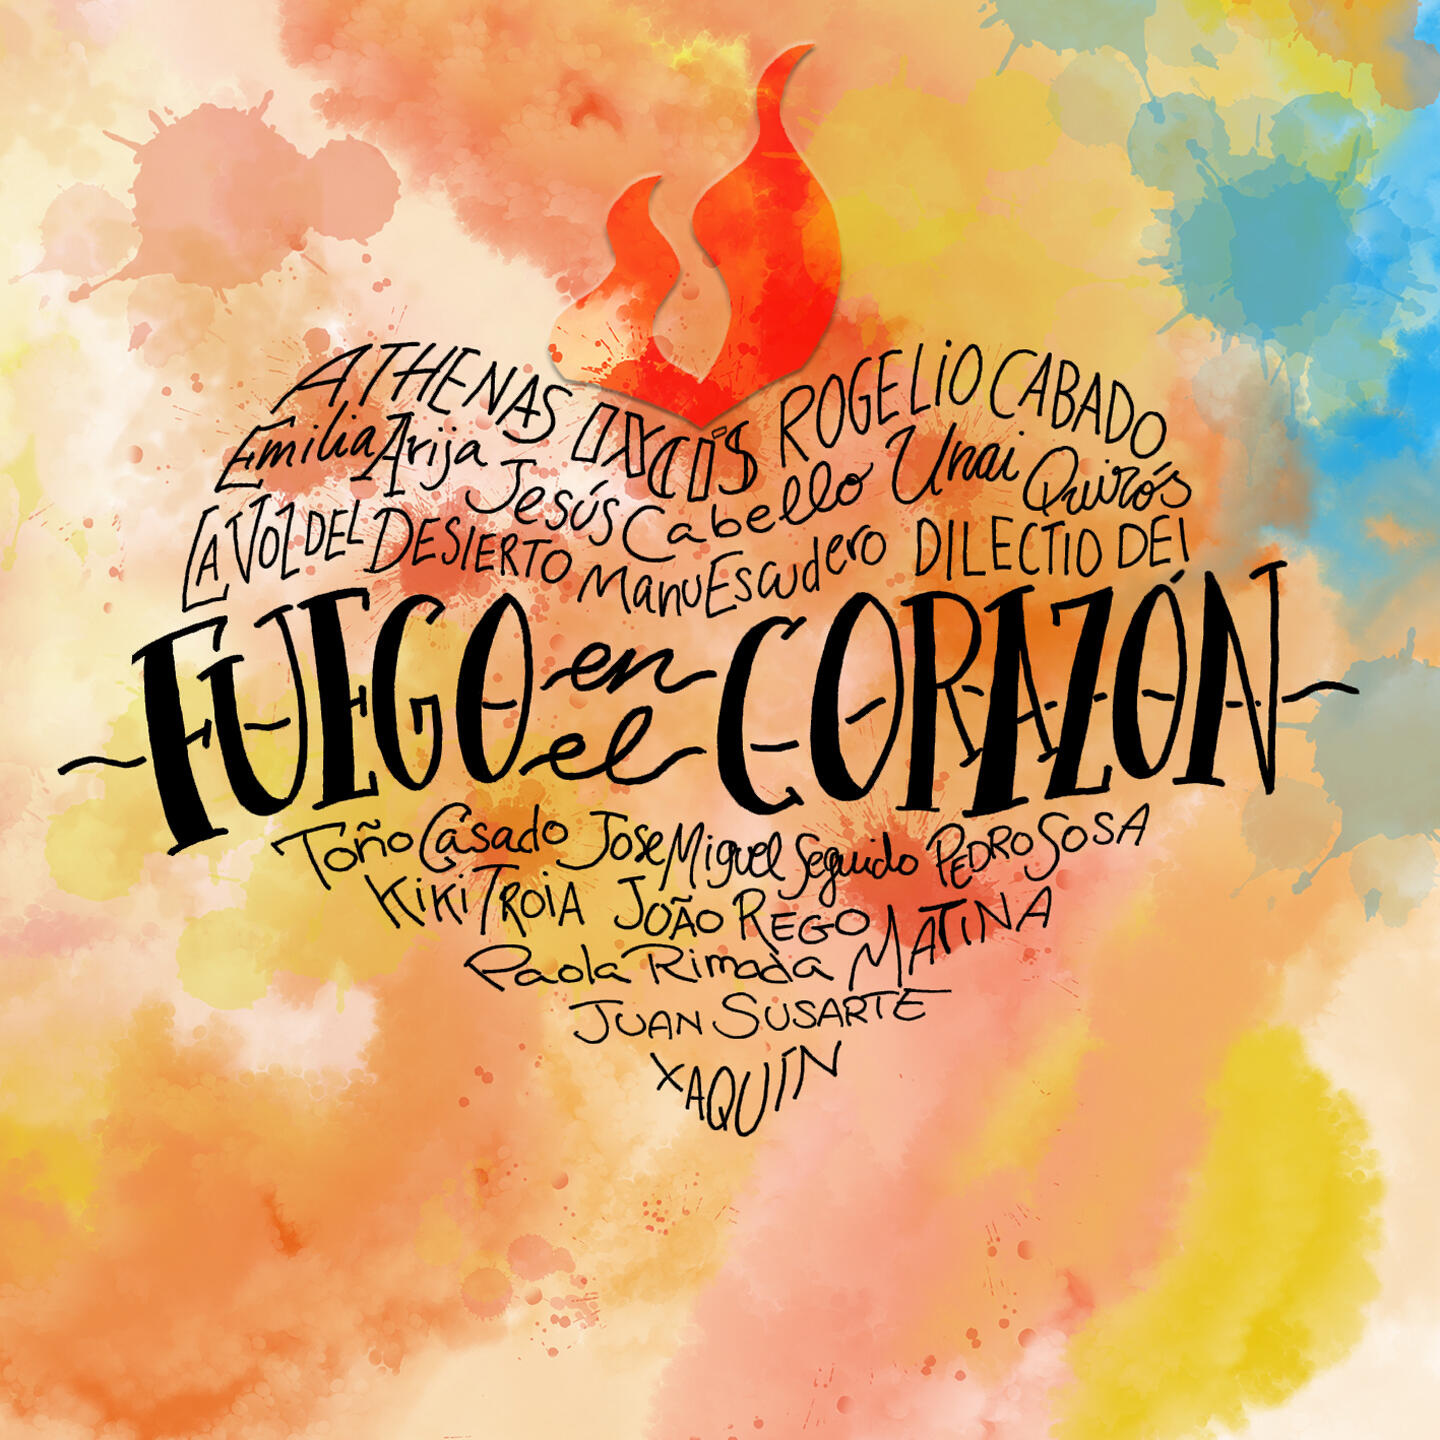 ATHENAS IXCÍS ROGELIO CABADO
Emilia Arija Jesús Cabello Unai Quirós
LA VOZ DEL DESIERTO Manu Escudero DILECTIO DEI
FUEGO en el CORAZÓN
Toño Casado Jose Miguel Seguido PEDRO SOSA
KIKI TROIA JOÃO REGO MATINA
Paola Rimada
JUAN SUSARTE
XAQUÍN